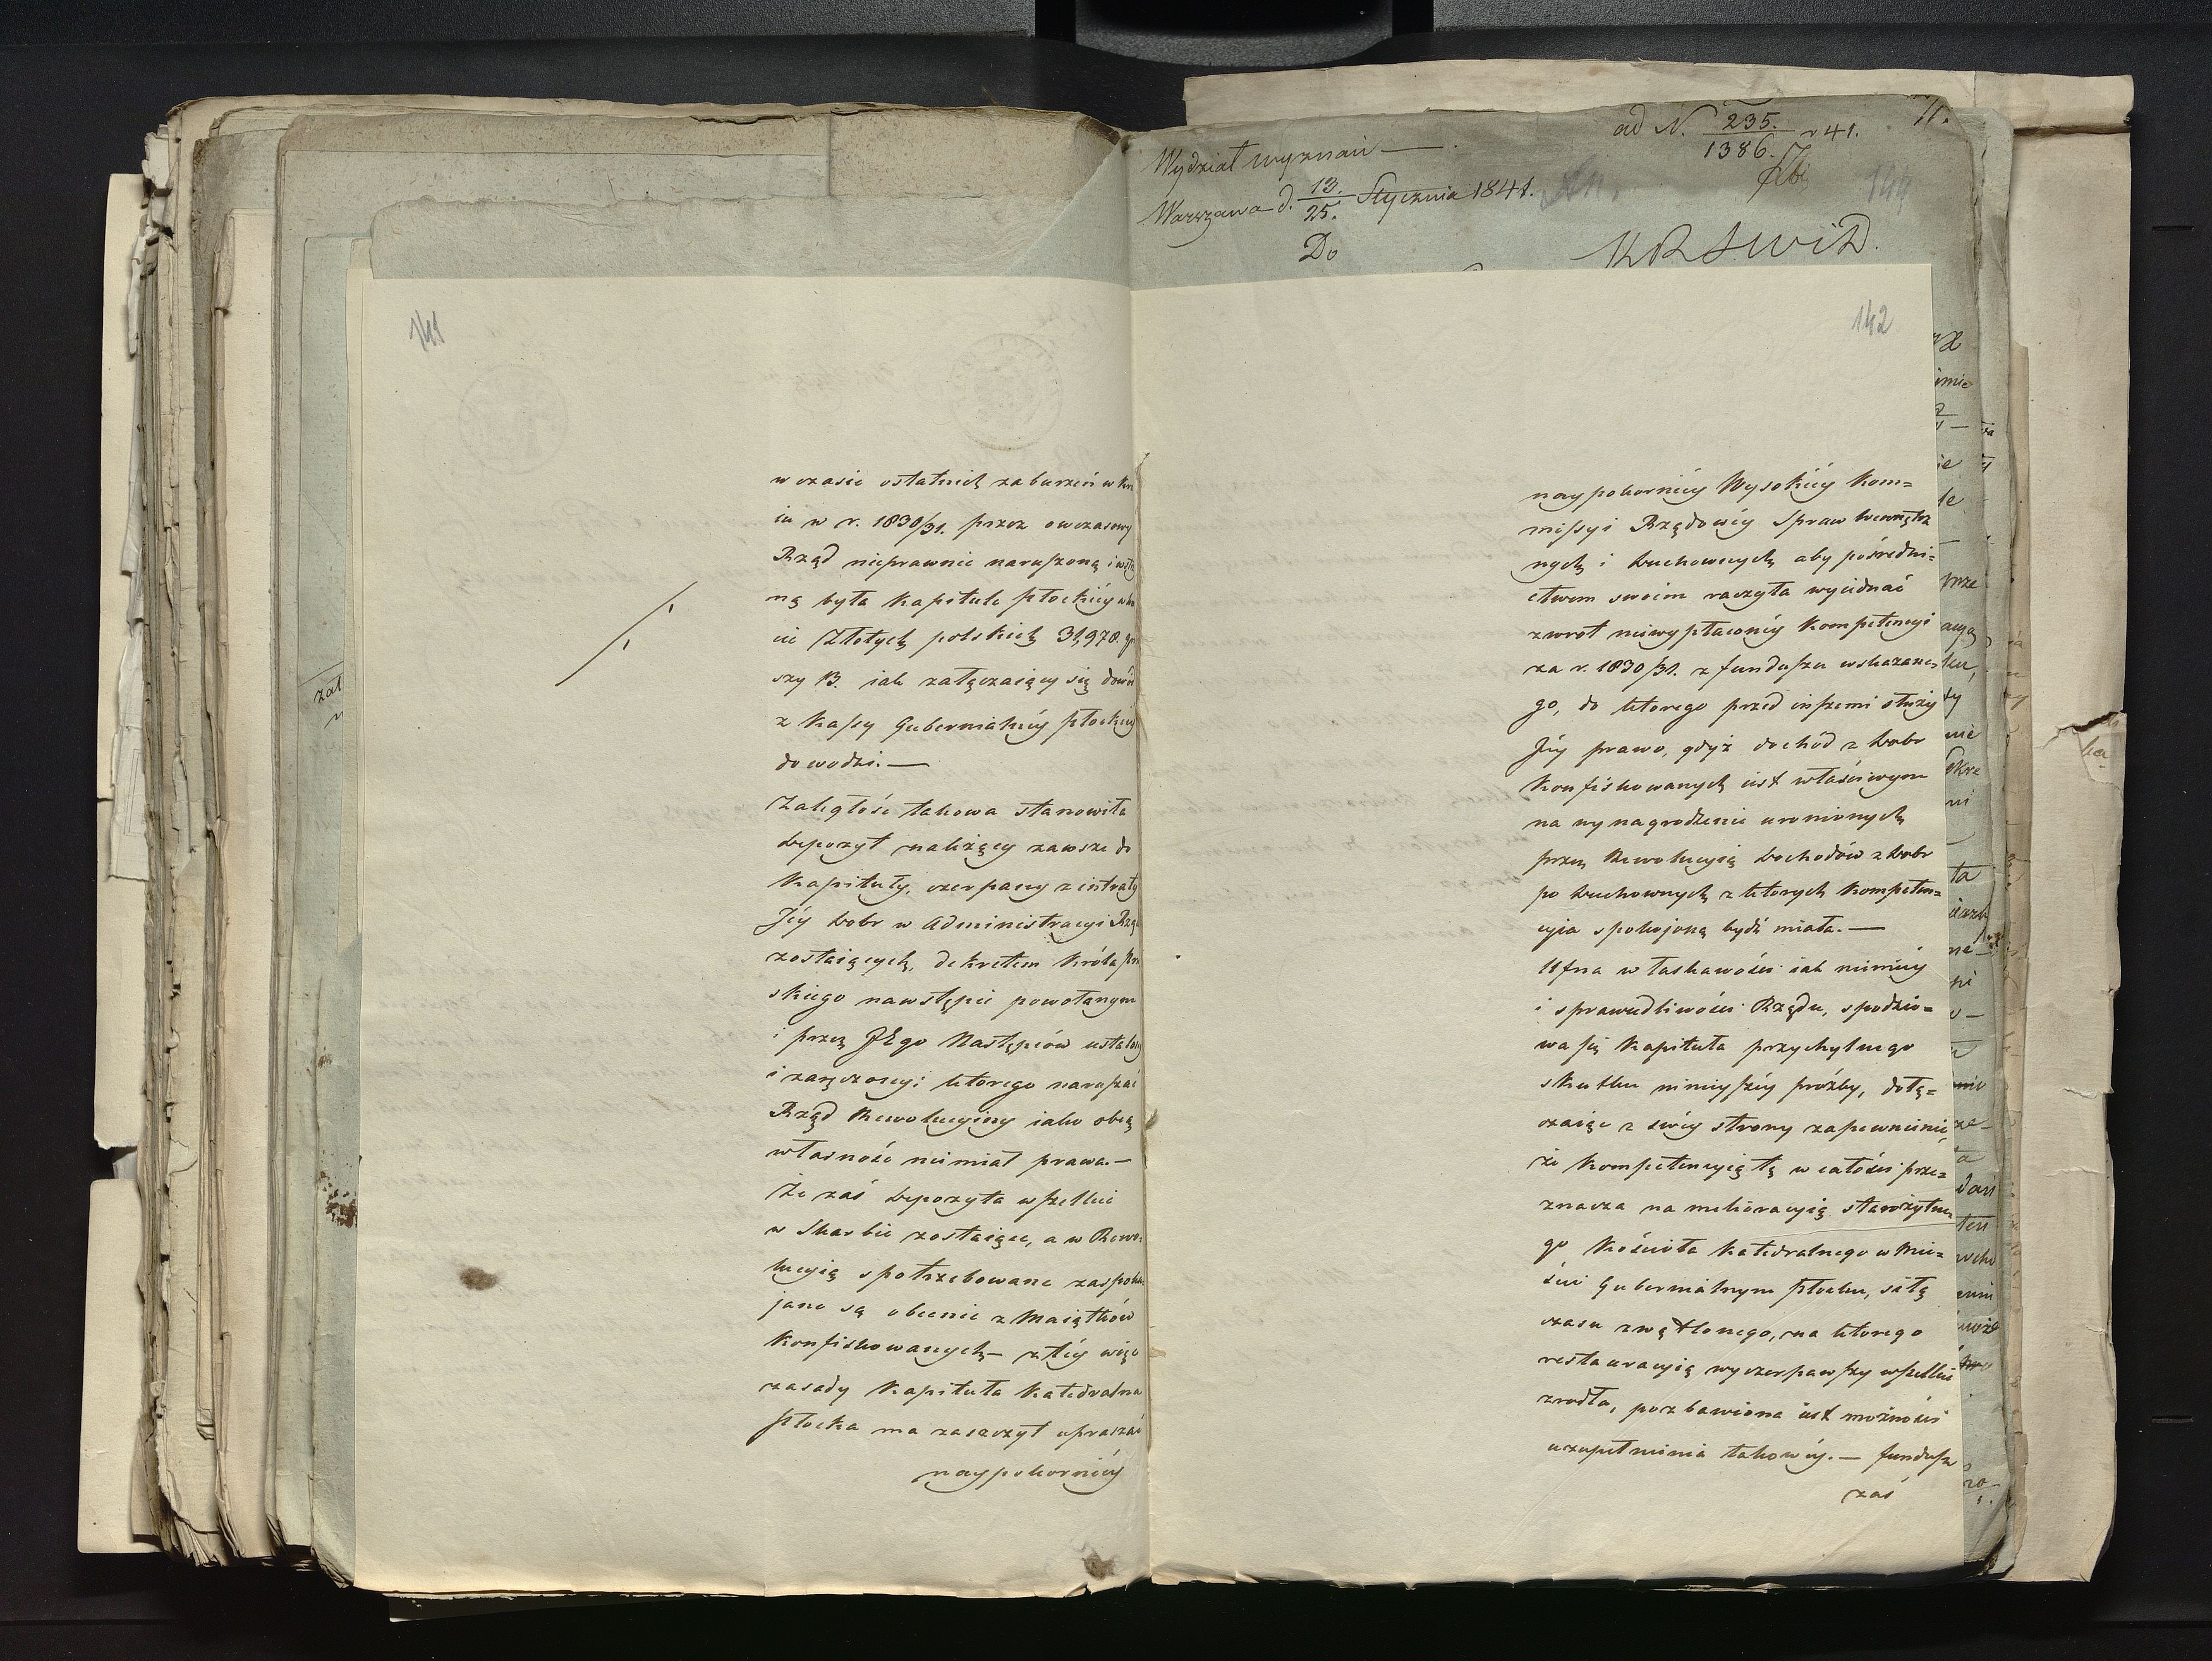 ad N. 235./1386. r 41.
11.
Wydział wyznań —
Warszawa d. 13./25. Stycznia 1841.
144
Do
KRSWiD.
141
w czasie ostatnich zaburzeń w kra
iu w r. 1830/31. przez owczasowy
Rząd nieprawnie naruszoną i
ną była Kapitule płockiéy w
cie Złotych polskich 31,970. gro
szy 13. iak załączaiący się dowód
z Kassy Guberniałnéy płockiéy
dowodzi. —
Zaległość takowa stanowiła
depozyt należący zawsze do
Kapituły, czerpany z intraty
Jéy dobr w Administracyi Rzą
zostaiących, dekretem Króla pru
skiego nawstępie powołanym
i przez JEgo Następców ustalony
i zaręczony: którego naruszać
Rząd Rewolucyiny iako obcą
własność niemiał prawa. —
Że zaś depozyta wszelkie
w Skarbie zostaiące, a w Rewo=
lucyią spotrzebowane zaspoko
jane są obecnie z Maiątków
Konfiskowanych — z téy więc
zasady Kapituła Katedralna
płocka ma zaszczyt upraszać
naypokorniéy
142
naypokorniéy Wysokiéy Kom=
missyi Rządowéy Spraw Wewnętrz
nych i Duchownych aby pośredni=
ctwem swoim raczyła wyiednać
zwrot niewypłaconéy Kompetencyi
za r. 1830/31. z funduszu wskazane=
go, do którego przed inszemi służy
Jéy prawo, gdyż dochód z Dobr
Konfiskowanych iest właściwym
na wynagrodzenie uronionych
przez Rewolucyią dochodów z Dobr
po Duchownych z których Kompeten=
cyia spokojoną bydź miała. —
Ufna w łaskawości iak niemniéy
i sprawiedliwości Rządu, spodzie=
wa się Kapituła przychylnego
skutku ninieyszéy proźby, dołą=
czaiąc z swéy strony zapewnienie,
że Kompetencyią tę w całości prze=
znacza na melioracyią starożytne=
go Kościoła Katedralnego w Mie=
ście Gubernialnym płocku, siłą
czasu zwątlonego, na którego
restauracyią wyczerpawszy wszelkie
zrodła, pozbawiona iest możności
uzupełnienia takowéy. — fundusz
zaś